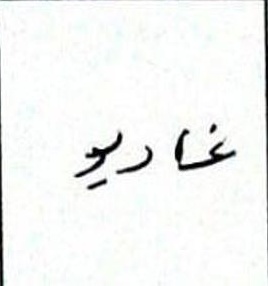 غاديو